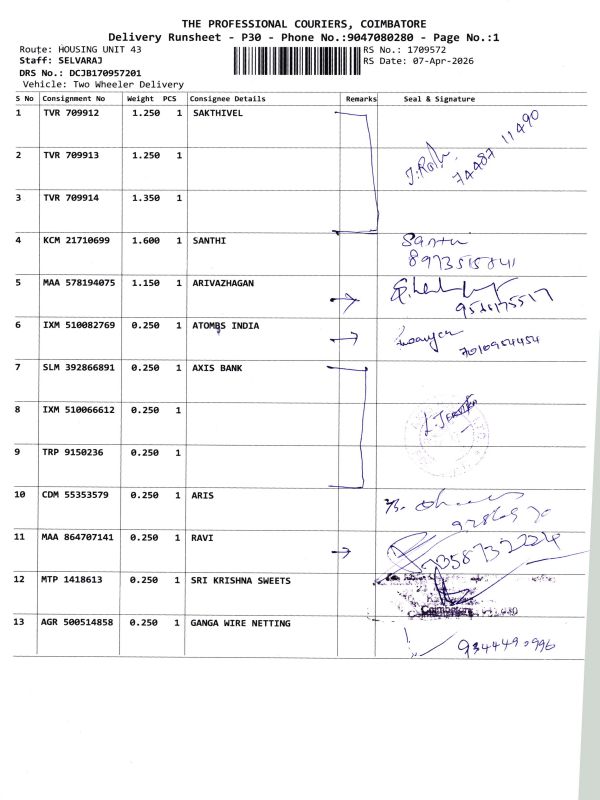 THE PROFESSIONAL COURIERS, COIMBATORE
Delivery Runsheet - P30 - Phone No.:9047080280 - Page No.:1
Route: HOUSING UNIT 43
RS No.: 1709572
Staff: SELVARAJ
RS Date: 07-Apr-2026
DRS No.: DCJB170957201
Vehicle: Two Wheeler Delivery
S No Consignment No Weight PCS Consignee Details Remarks Seal & Signature
1 TVR 709912 1.250 1 SAKTHIVEL
74487 11490
2 TVR 709913 1.250 1
3 TVR 709914 1.350 1
4 KCM 21710699 1.600 1 SANTHI
5 MAA 578194075 1.150 1 ARIVAZHAGAN
6 IXM 510082769 0.250 1 ATOMBS INDIA
7010954454
7 SLM 392866891 0.250 1 AXIS BANK
8 IXM 510066612 0.250 1
9 TRP 9150236 0.250 1
10 CDM 55353579 0.250 1 ARIS
11 MAA 864707141 0.250 1 RAVI
7358732224
12 MTP 1418613 0.250 1 SRI KRISHNA SWEETS
Coimbatore
13 AGR 500514858 0.250 1 GANGA WIRE NETTING